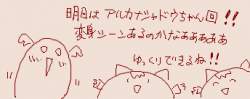 明日は アルカナシャドウちゃん回!!
変身シーンあるのかなあああああ
ゆっくりできるね!!